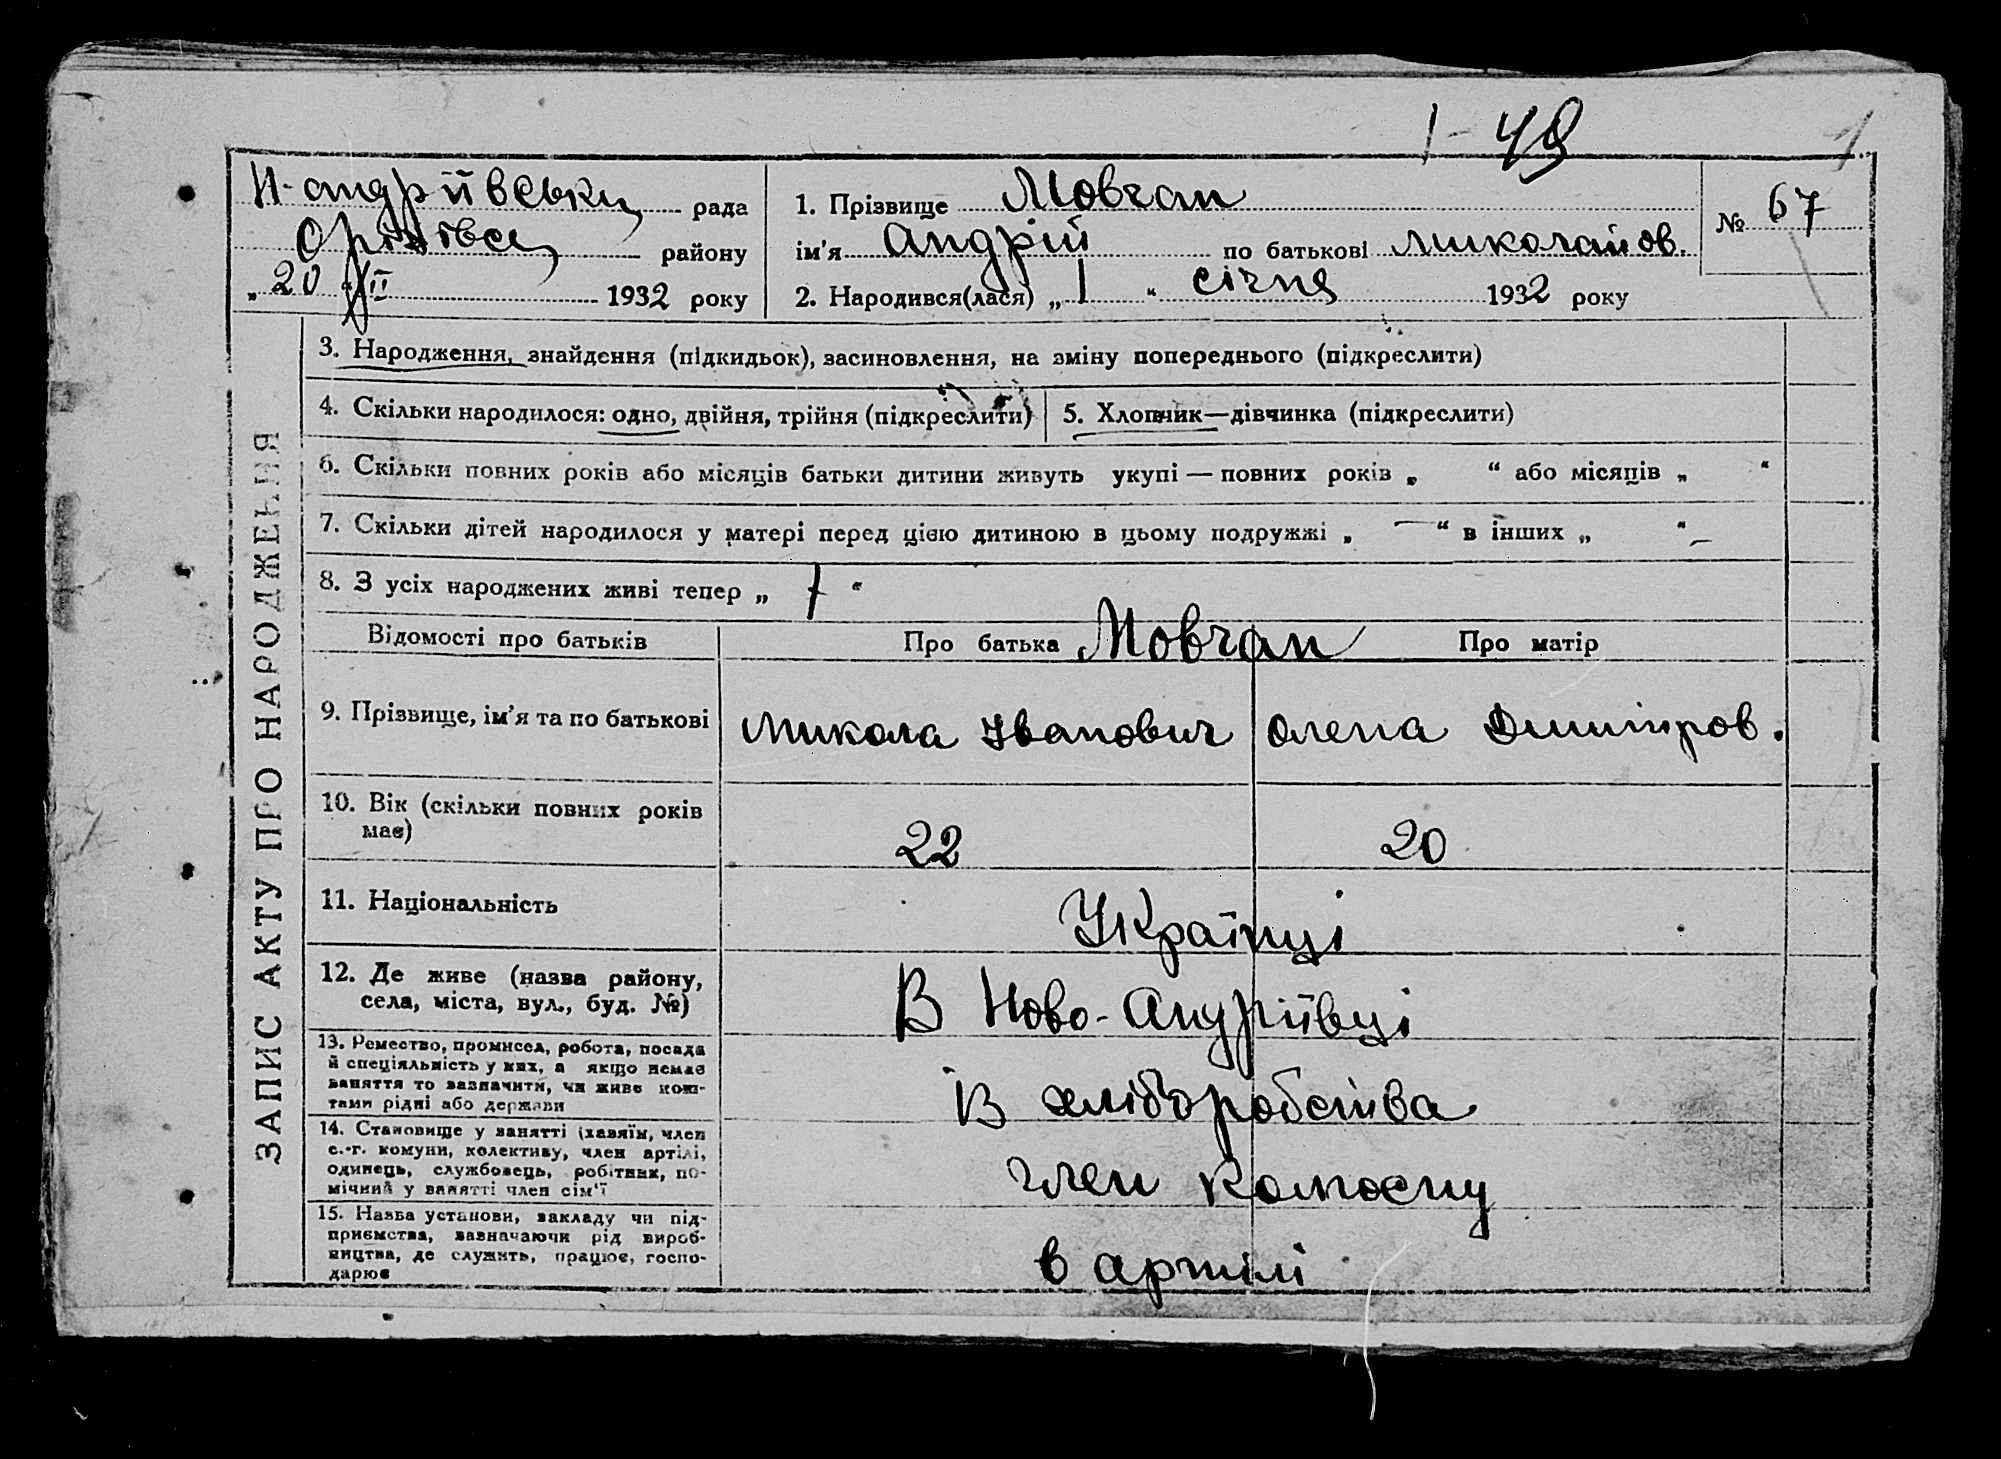 1-49
1
Н-андріївська рада
Оріхівськ району
„20 „ II 1932 року
1. Прізвище Мовчан
ім'я Андрій по батькові миколайов.
2. Народився(лася) „1“ січня 1932 року
№ 67
ЗАПИС АКТУ ПРО НАРОДЖЕННЯ
3. Народження, знайдення (підкидьок), засиновлення, на зміну попереднього (підкреслити)
4. Скільки народилося: одно, двійня, трійня (підкреслити)
5. Хлопчик—дівчинка (підкреслити)
6. Скільки повних років або місяців батьки дитини живуть укупі — повних років „ “ або місяців „ “
7. Скільки дітей народилося у матері перед цією дитиною в цьому подружжі „ — “ в інших „ “ —
8. З усіх народжених живі тепер „ “
Відомості про батьків
Про батька Мовчан Про матір
9. Прізвище, ім'я та по батькові
микола Іванович
олена Дмитров.
10. Вік (скільки повних років
має)
22
20
11. Національність
Українці
12. Де живе (назва району,
села, міста, вул., буд. №)
В Ново-Андріївці
13. Ремество, промисел, робота, посада
й спеціяльність у них, а якщо немає
заняття то зазначити, чи живе кош-
тами рідні або держави
Із хліборобства
14. Становище у занятті (хазяїн, член
с.-г. комуни, колективу, член артілі,
одинець, службовець, робітник, по-
мічний у занятті член сім'ї
член
15. Назва установи, закладу чи під-
приємства, зазначаючи рід вироб-
ництва, де служить, працює, госпо-
дарює
в артілі